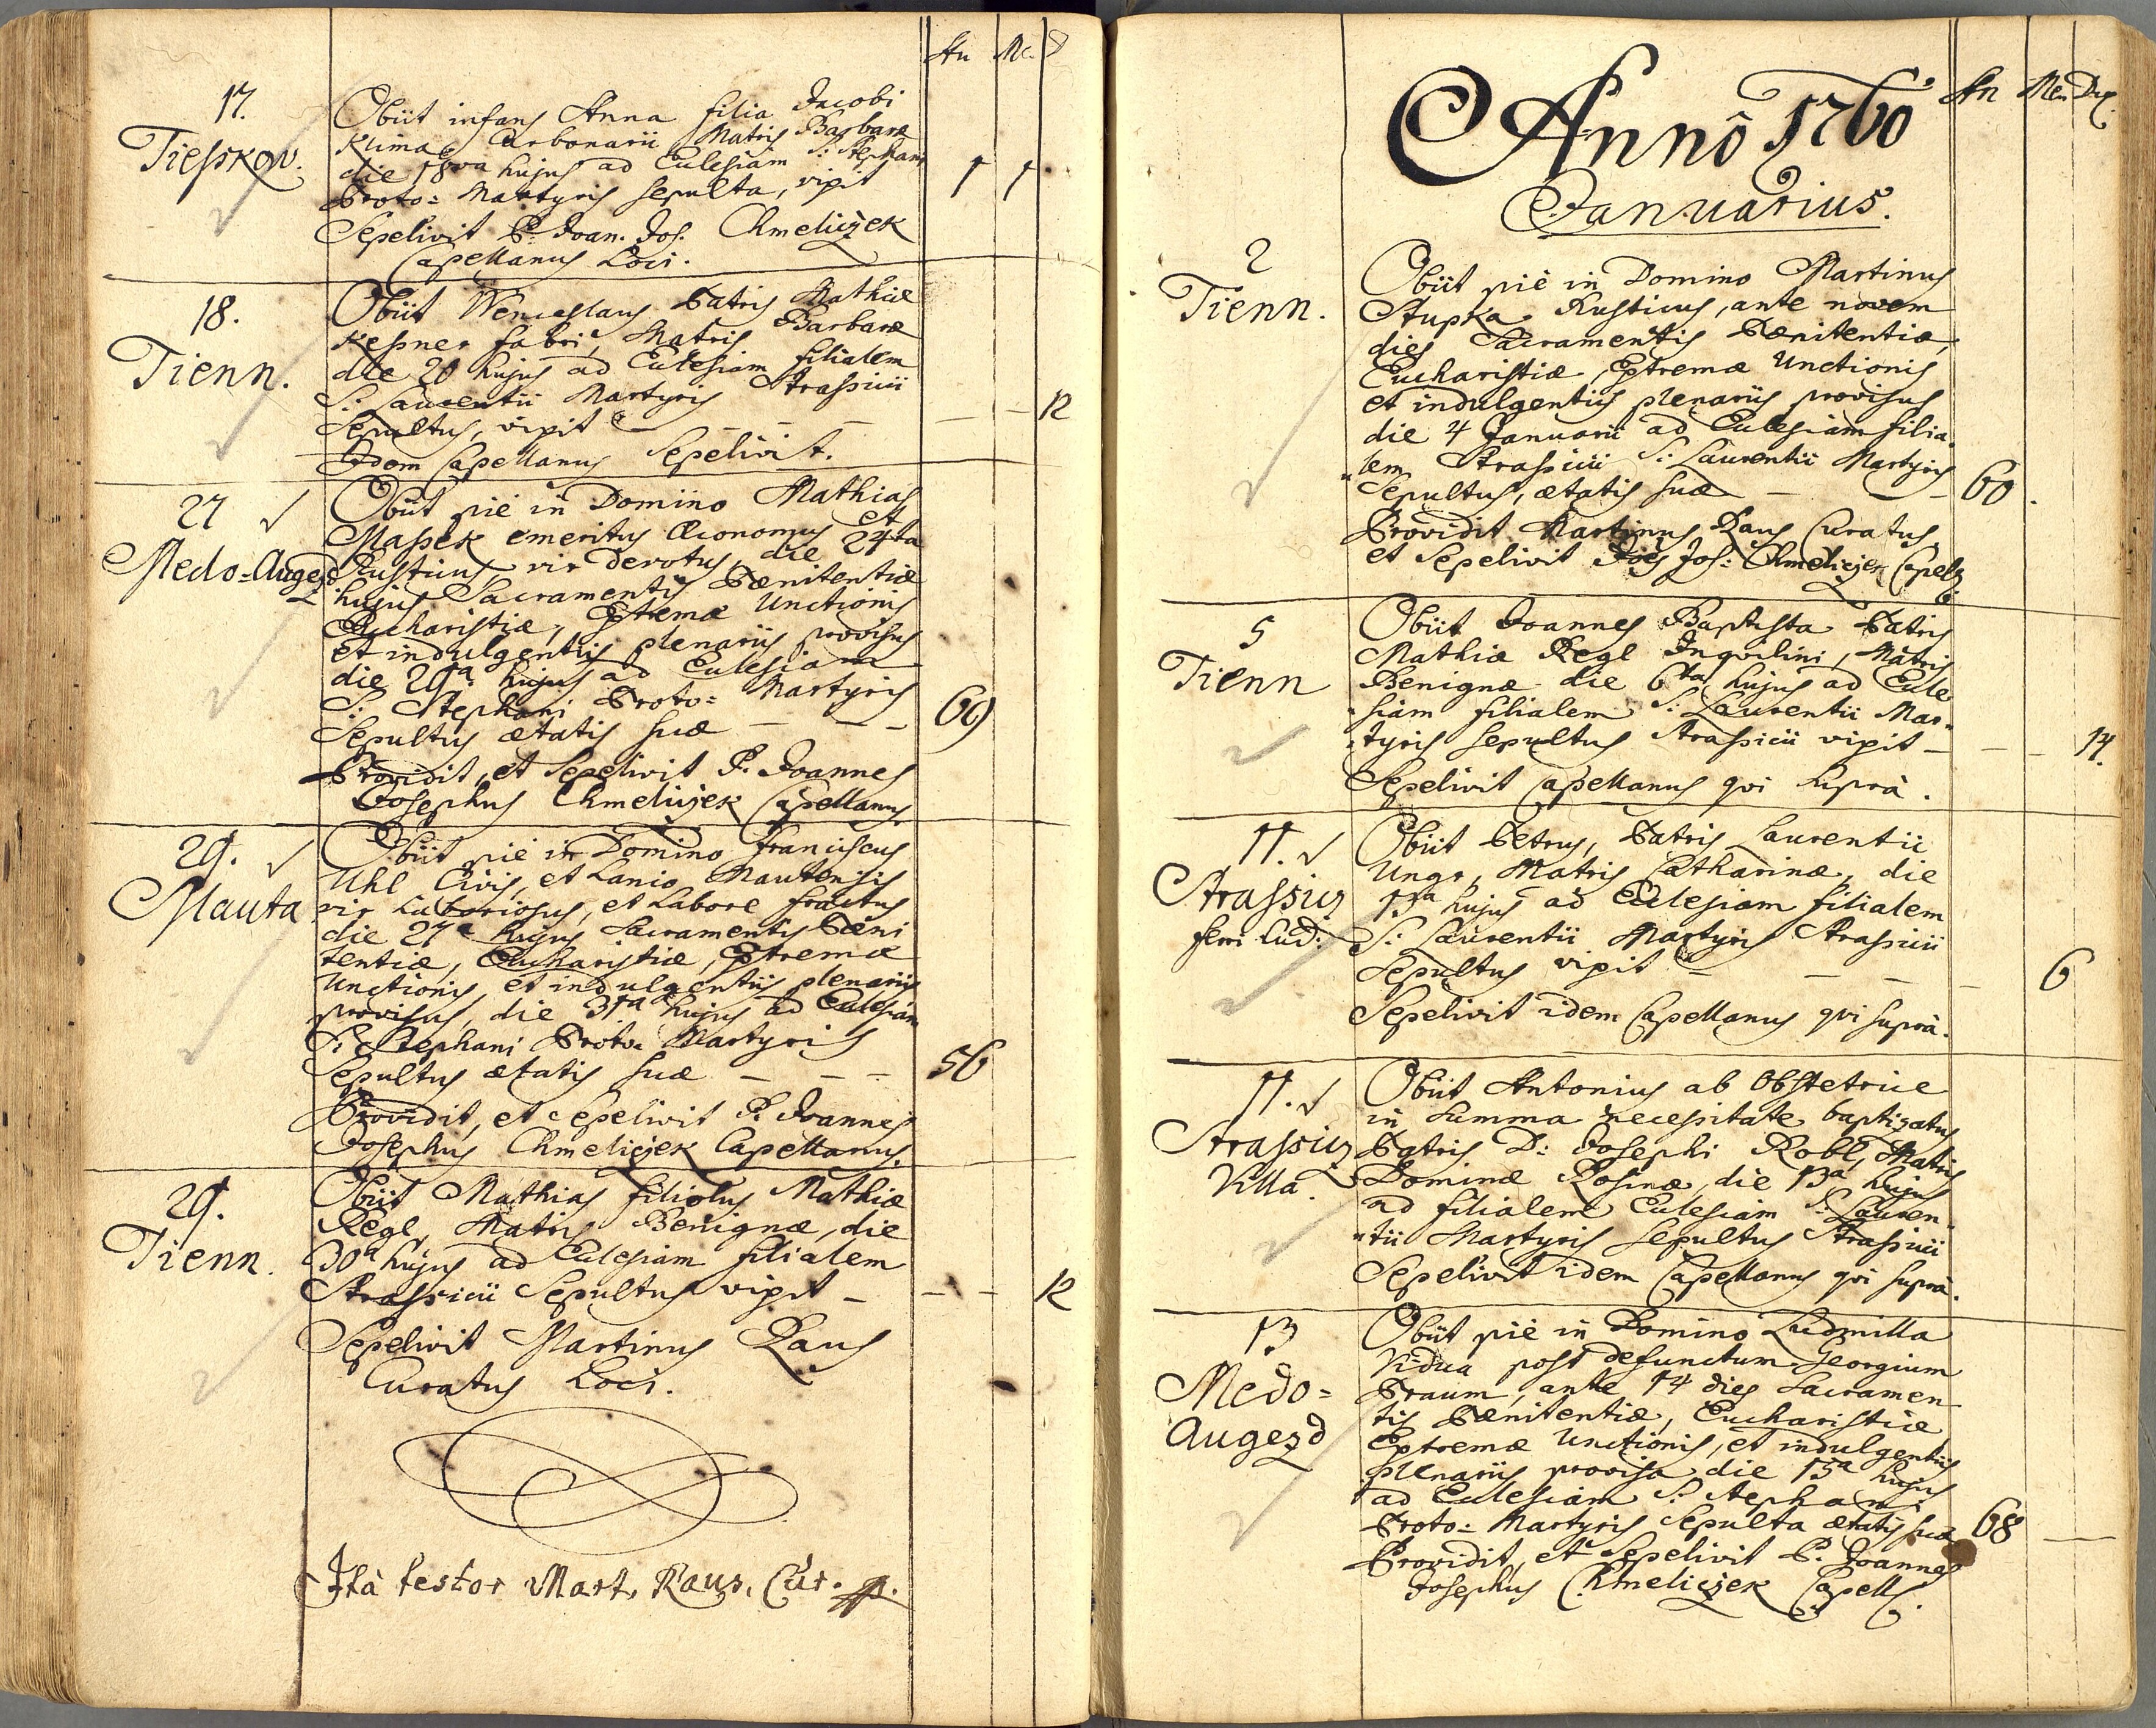 An Me. D
17.
Tiesskow.
Obiit infans Anna filia Jacobi
Klima Carbonarii Matris Barbaræ
die 18va hujus ad Ecclesiam S: Stephani
Proto= Martyris sepulta, vixit
1 1
Sepelivit P. Joan. Jos. Chmeliczek
Capellanus Loci.
18.
Tienn.
Obiit Wenceslaus Patris Mathiæ
Kessner fabri, Matris Barbaræ
die 20 hujus ad Ecclesiam filialem
S: Laurentii Martyris Strassicii
Sepultus, vixit — — — — — 12
Idem Capellanus Sepelivit.
27
Medo=Augezd
Obiit pie in Domino Mathias
Massek emeritus Œconomus et
Rusticus, vir devotus, die 24ta
hujus Sacramentis Pænitentiæ
Eucharistiæ, Extremæ Unctionis
et indulgentiis plenariis provisus
die 29a hujus ad Ecclesiam
S: Stephani Proto= Martyris
Sepultus ætatis suæ — — 69
Providit, et Sepelivit P. Joannes
Josephus Chmeliczek Capellanus.
29.
Mauta
Obiit pie in Domino Franciscus
Uhl Civis, et Lanio Mautensis
vir Laboriosus, et Labore fractus
die 27a hujus Sacramentis Pæni
tentiæ, Eucharistiæ, Extremæ
Unctionis, et indulgentiis plenariis
provisus, die 31a hujus ad Ecclesiam
S: Stephani Proto= Martyris
Sepultus ætatis suæ — — — 56
Providit, et Sepelivit P. Joannes
Josephus Chmeliczek Capellanus.
29.
Tienn.
Obiit Mathias filiolus Mathiæ
Regl, Matris Benignæ, die
30a hujus ad Ecclesiam filialem
Strassicii Sepultus vixit — — — 12
Sepelivit Martinus Raus
Curatus Loci.
Ita testor Mart. Raus, Cur.
An Men Die
Anno 1760
Januarius.
2
Tienn.
Obiit pie in Domino Martinus
Stupka Rusticus, ante novem
dies Sacramentis Pænitentiæ,
Eucharistiæ, Extremæ Unctionis
et indulgentiis plenariis provisus
die 4 Januarii ad Ecclesiam filia=
lem Strassicii S: Laurentii Martyris
Sepultus, ætatis suæ — — 60.
Providit Martinus Raus Curatus,
et Sepelivit Jos: Chmeliczek Capel:
5
Tienn
Obiit Joannes Baptista Patris
Mathiæ Regl Inquilini, Matris
Benignæ die 6ta hujus ad Eccle
siam filialem S: Laurentii Mar=
tyris sepultus Strassicii vixit — — — 14.
Sepelivit Capellanus qvi supra.
11.
Strassicz
ferri Cud:
Obiit Petrus, Patris Laurentii
Ungr, Matris Catharinæ, die
13a hujus ad Ecclesiam filialem
S: Laurentii Martyris Strassicii
Sepultus vixit — — — — 6
Sepelivit idem Capellanus qvi supra.
11.
Strassicz
Villa.
Obiit Antonius ab Obstetrice
in summa necessitate baptizatus
Patris D: Josephi Robl, Matris
Dominæ Rosinæ, die 13a hujus
ad filialem Ecclesiam S: Lauren=
tii Martyris Sepultus Strassicii
Sepelivit idem Capellanus qvi supra.
13
Medo=
Augezd
Obiit pie in Domino Ludmilla
Vidua post defunctum Georgium
Praum, ante 14 dies Sacramen
tis Pænitentiæ, Eucharistiæ
Extremæ Unctionis, et indulgentiis
plenariis provisa die 15a hujus
ad Ecclesiam S: Stephani
Proto= Martyris Sepulta ætatis suæ 68 —
Providit, et Sepelivit P. Joannes
Josephus Chmeliczek Capell.